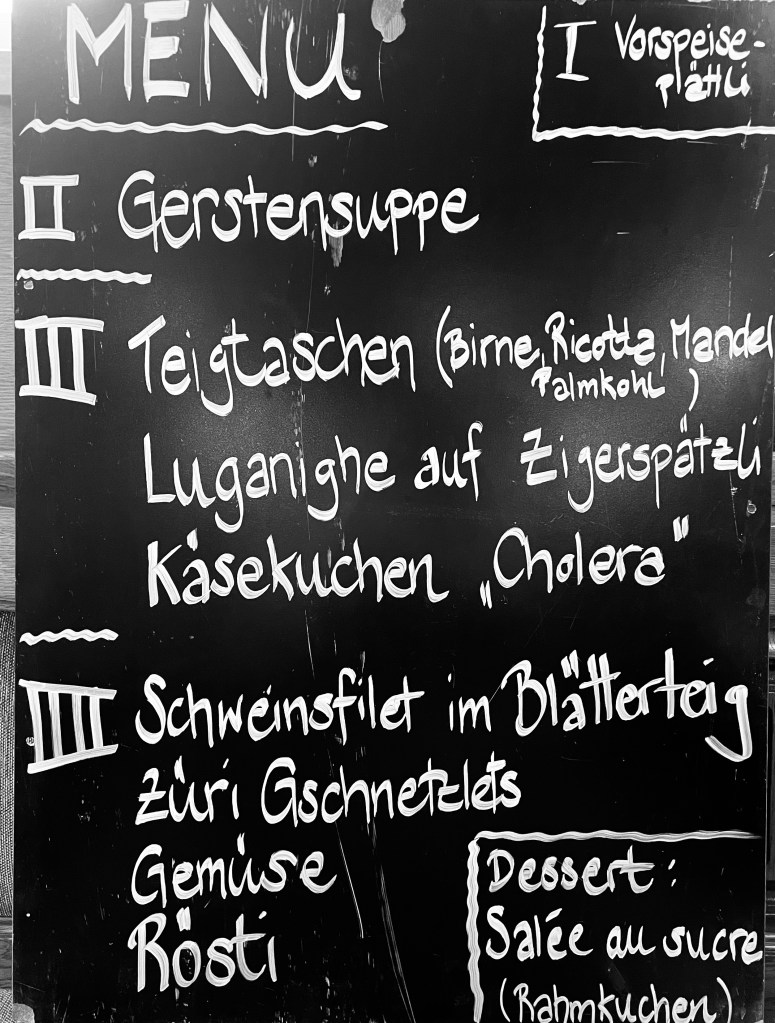 MENU
I Vorspeise-
plättli
II Gerstensuppe
III Teigtaschen (Birne, Ricotta, Mandel
Palmkohl)
Luganighe auf Zigerspätzli
Käsekuchen „Cholera"
IIII Schweinsfilet im Blätterteig
Züri Gschnetzlets
Gemüse
Rösti
Dessert:
Salée au sucre
(Rahmkuchen)